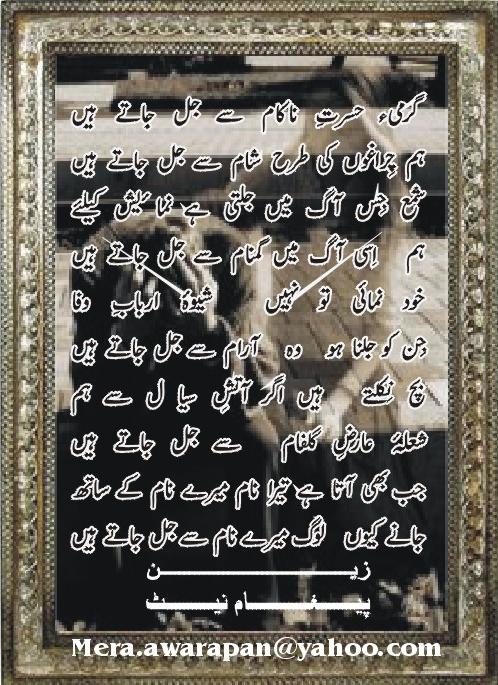 گرمیء حسرتِ ناکام سے جل جاتے ہیں
ہم چراغوں کی طرح شام سے جل جاتے ہیں
شمع جس آگ میں جلتی ہے نمائیش کیلئے
ہم اِسی آگ میں گمنام سے جل جاتے ہیں
خود نمائی تو نہیں شیوۂ ارباب وفا
جن کو جلنا ہو وہ آرام سے جل جاتے ہیں
بچ نکلتے ہیں اگر آتشِ سیا ل سے ہم
شعلۂ عارضِ گلفام سے جل جاتے ہیں
جب بھی آتا ہے تیرا نام میرے نام کے ساتھ
جانے کیوں لوگ میرے نام سے جل جاتے ہیں
زیـــن
پیـغـــام نیـــٹ
Mera.awarapan@yahoo.com